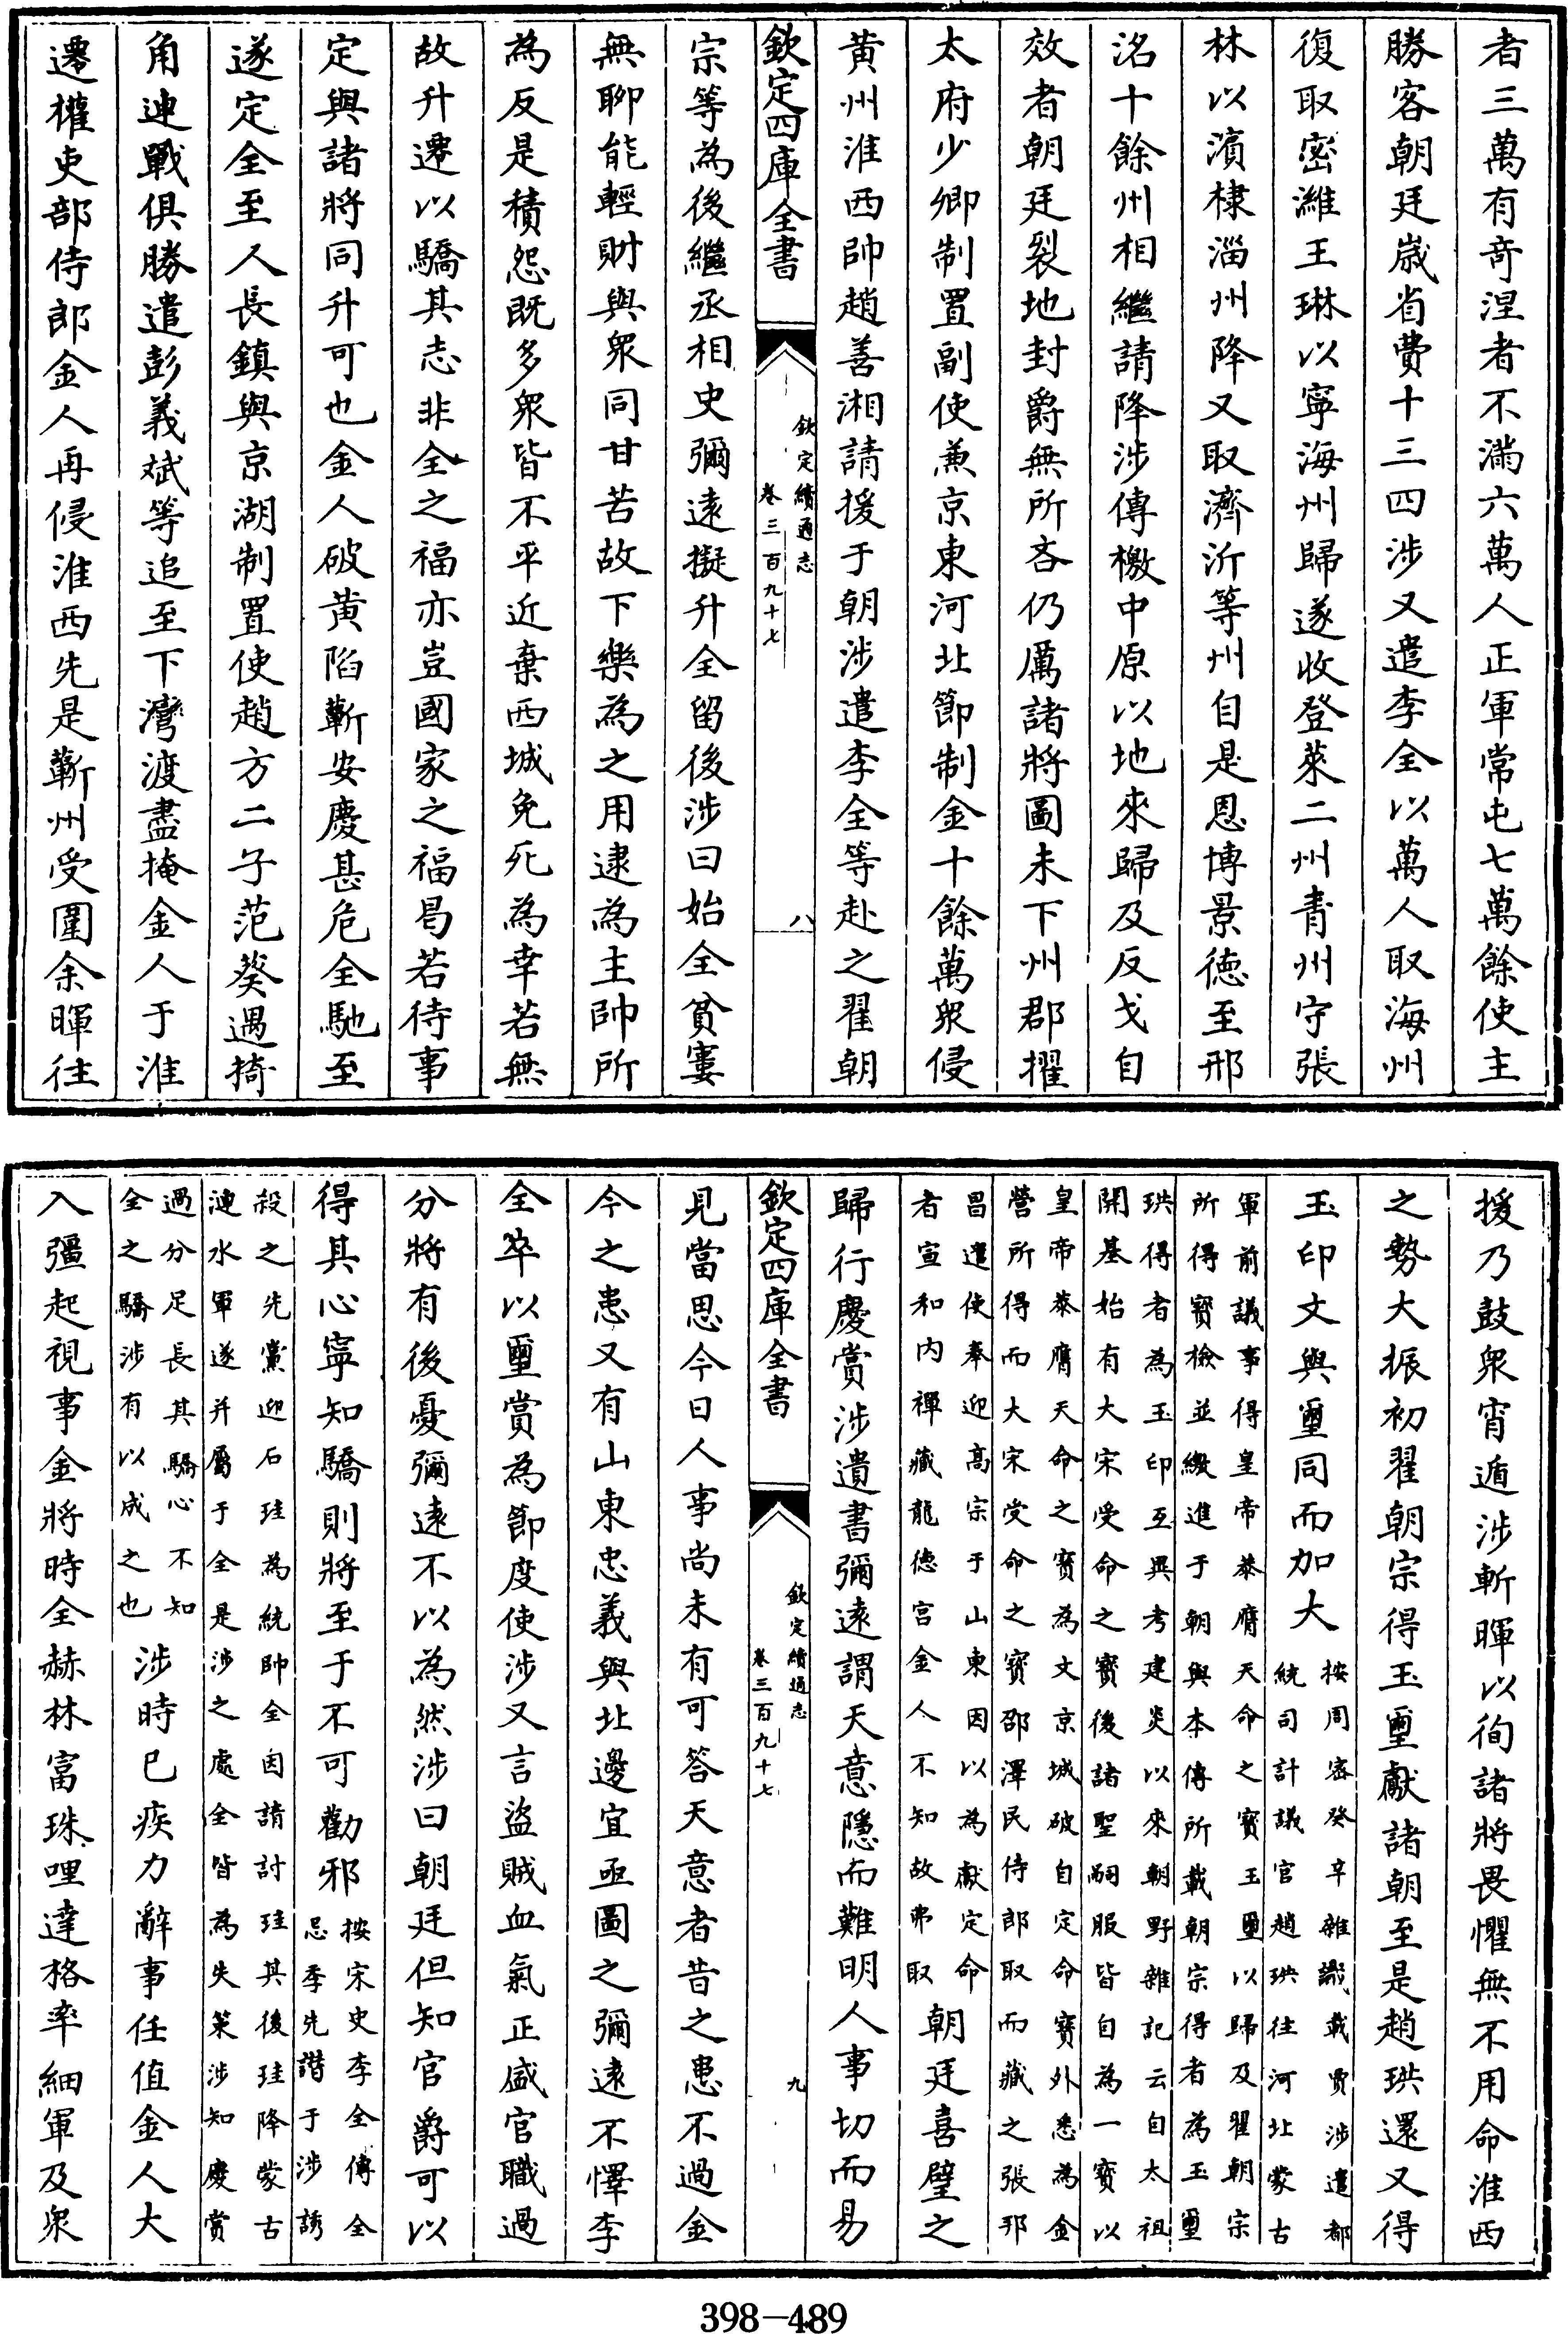 者三萬有竒涅者不滿六萬人正軍常屯七萬餘使主
勝客朝廷歲省費十三四涉又遣李全以萬人取海州
復取密濰王琳以寧海州歸遂收登萊二州青州守張
林以濱棣淄州降又取濟沂等州自是恩博景德至邢
洺十餘州相繼請降涉傳檄中原以地來歸及反戈自
效者朝廷裂地封爵無所吝仍厲諸將圖未下州郡擢
太府少卿制置副使兼京東河北節制金十餘萬衆侵
黄州淮西帥趙善湘請援于朝涉遣李全等赴之翟朝
欽定四庫全書
欽定續通志
卷三百九十七
八
宗等為後繼丞相史彌遠擬升全留後涉曰始全貧窶
無聊能輕財與衆同甘苦故下樂為之用逮為主帥所
為反是積怨既多衆皆不平近棄西城免死為幸若無
故升遷以驕其志非全之福亦豈國家之福曷若待事
定與諸將同升可也金人破黄陷蘄安慶甚危全馳至
遂定全至人長鎮與京湖制置使趙方二子范葵遇掎
角連戰俱勝遣彭義斌等追至下灣渡盡掩金人于淮
遷權吏部侍郎金人再侵淮西先是蘄州受圍余暉往
援乃鼓衆宵遁涉斬暉以徇諸將畏懼無不用命淮西
之勢大振初翟朝宗得玉璽獻諸朝至是趙珙還又得
玉印文與璽同而加大
按周密癸辛雜識載賈涉遣都
統司計議官趙珙往河北蒙古
軍前議事得皇帝恭膺天命之寶玉璽以歸及翟朝宗
所得寶檢並繳進于朝與本傳所載朝宗得者為玉璽
珙得者為玉印互異考建炎以來朝野雜記云自太祖
開基始有大宋受命之寶後諸聖嗣服皆自為一寶以
皇帝恭膺天命之寶為文京城破自定命寶外悉為金
營所得而大宋受命之寶邵澤民侍郎取而藏之張邦
昌遣使奉迎高宗于山東因以為獻定命
者宣和内禪藏龍德宮金人不知故弗取
朝廷喜璧之
歸行慶賞涉遺書彌遠謂天意隱而難明人事切而易
欽定四庫全書
欽定續通志
卷三百九十七
九
見當思今日人事尚未有可答天意者昔之患不過金
今之患又有山東忠義與北邊宜亟圖之彌遠不懌李
全卒以璽賞為節度使涉又言盜賊血氣正盛官職過
分將有後憂彌遠不以為然涉曰朝廷但知官爵可以
得其心寧知驕則將至于不可勸邪
按宋史李全傳全
忌季先譖于涉誘
殺之先黨迎石珪為統帥全因請討珪其後珪降蒙古
漣水軍遂并屬于全是涉之處全皆為失策涉知慶賞
過分足長其驕心不知
全之驕涉有以成之也
涉時已疾力辭事任值金人大
入彊起視事金將時全赫林富珠哩達格率細軍及衆
398-489